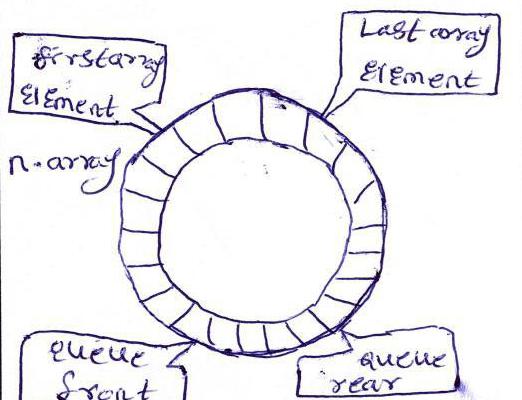 firstarray
Element
Last array
Element
n-array
Queue
front
Queue
rear